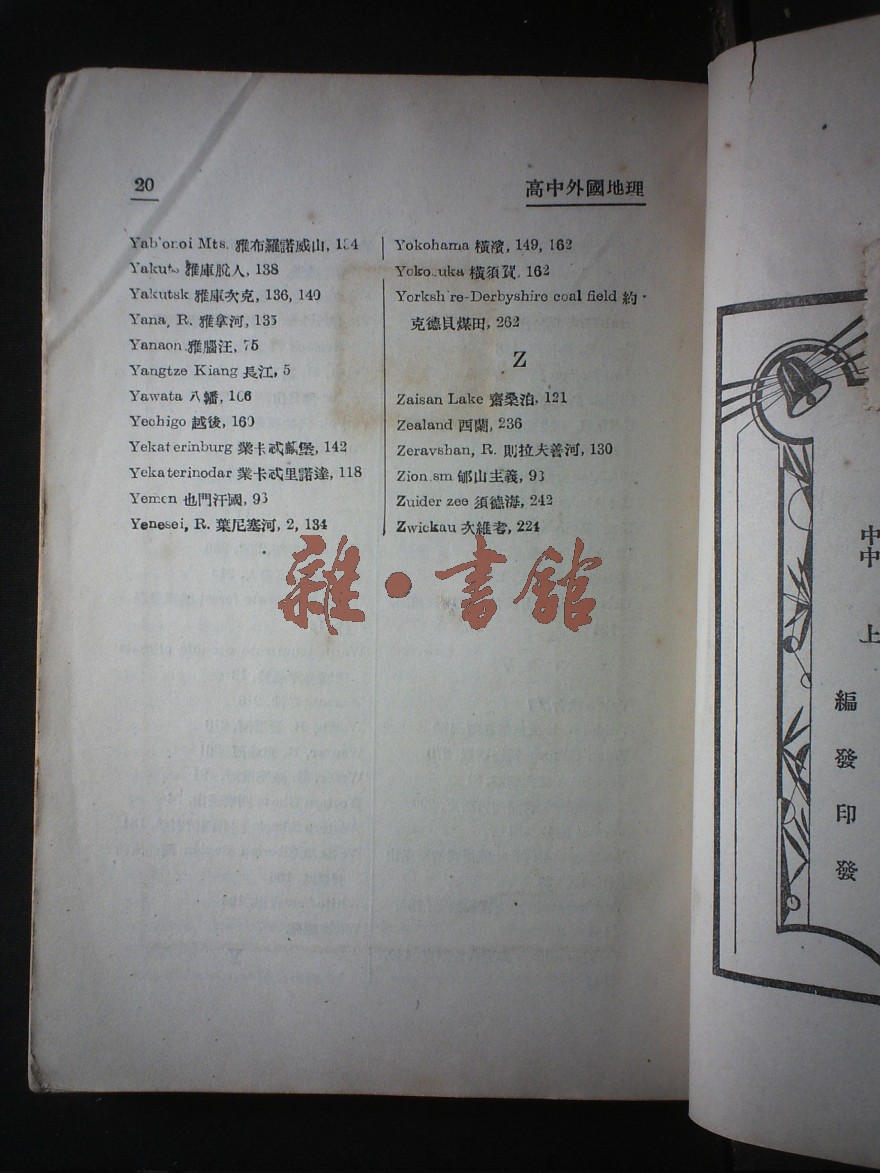 20
高中外國地理
Yab'onoi Mts. 雅布羅諾威山, 134
Yakuts 雅庫脫人, 138
Yakutsk 雅庫次克, 136, 140
Yana, R. 雅拿河, 135
Yanaon 雅腦汪, 75
Yangtze Kiang 長江, 5
Yawata 八幡, 166
Yechigo 越後, 160
Yekaterinburg 業卡忒䮾堡, 142
Yekaterinodar 業卡忒里諾達, 118
Yemen 也門汗國, 93
Yenesei, R. 葉尼塞河, 2, 134
Yokohama 橫濱, 149, 162
Yokosuka 橫須賀, 162
Yorkshire-Derbyshire coal field 約
克德貝煤田, 262
Z
Zaisan Lake 齋桑泊, 121
Zealand 西蘭, 236
Zeravshan, R. 則拉夫善河, 130
Zionism 郇山主義, 93
Zuider zee 須德海, 242
Zwickau 次維考, 224
雜·書館
中中
上
編
發
印
發